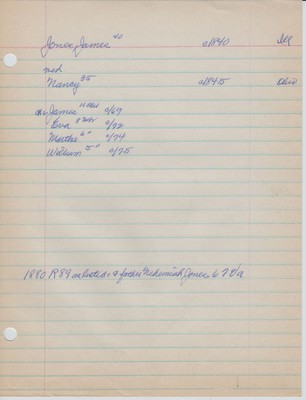 Jones, James 40 c/1840 Ill
med
Nancy 35 c/1845 Ohio
ch, James 11 c/69
Eva c/72
Martha 6" c/74
William 5" c/75
1880 R 89 as listed + father Nehemiah Jones 67 Va